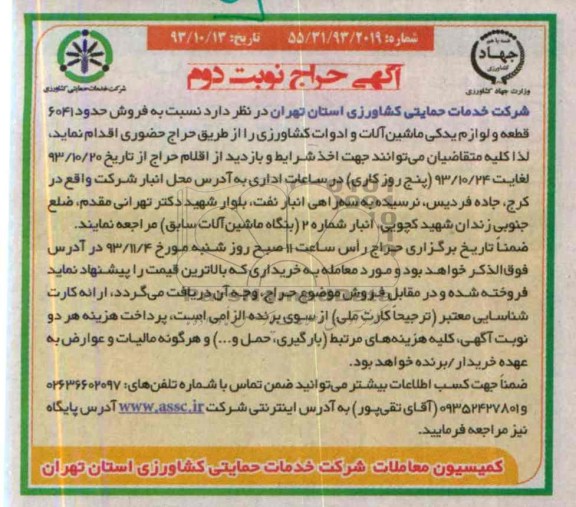 شماره: ۵۵/۳۱/۹۳/۲۰۱۹ تاریخ: ۹۳/۱۰/۱۳
همه با هم
جهاد
کشاورزی
وزارت جهاد کشاورزی
شرکت خدمات حمایتی کشاورزی
آگهی حراج نوبت دوم
شرکت خدمات حمایتی کشاورزی استان تهران در نظر دارد نسبت به فروش حدود ۶۰۴۱
قطعه و لوازم یدکی ماشین‌آلات و ادوات کشاورزی را از طریق حراج حضوری اقدام نماید،
لذا کلیه متقاضیان می‌توانند جهت اخذ شرایط و بازدید از اقلام حراج از تاریخ ۹۳/۱۰/۲۰
لغایت ۹۳/۱۰/۲۴ (پنج روز کاری) در ساعات اداری به آدرس محل انبار شرکت واقع در
کرج، جاده فردیس، نرسیده به سه‌راهی انبار نفت، بلوار شهید دکتر تهرانی مقدم، ضلع
جنوبی زندان شهید کچویی، انبار شماره ۲ (بنگاه ماشین‌آلات سابق) مراجعه نمایند.
ضمناً تاریخ برگزاری حراج رأس ساعت ۱۱ صبح روز شنبه مورخ ۹۳/۱۱/۴ در آدرس
فوق‌الذکر خواهد بود و مورد معامله به خریداری که بالاترین قیمت را پیشنهاد نماید
فروخته شده و در مقابل فروش موضوع حراج، وجه آن دریافت می‌گردد، ارائه کارت
شناسایی معتبر (ترجیحاً کارت ملی) از سوی برنده الزامی است، پرداخت هزینه هر دو
نوبت آگهی، کلیه هزینه‌های مرتبط (بارگیری، حمل و...) و هرگونه مالیات و عوارض به
عهده خریدار/برنده خواهد بود.
ضمناً جهت کسب اطلاعات بیشتر می‌توانید ضمن تماس با شماره تلفن‌های: ۰۲۶۳۶۶۰۲۰۹۷
و ۰۹۳۵۲۴۲۷۸۰۱ (آقای تقی‌پور) به آدرس اینترنتی شرکت www.assc.ir آدرس پایگاه
نیز مراجعه فرمایید.
کمیسیون معاملات شرکت خدمات حمایتی کشاورزی استان تهران